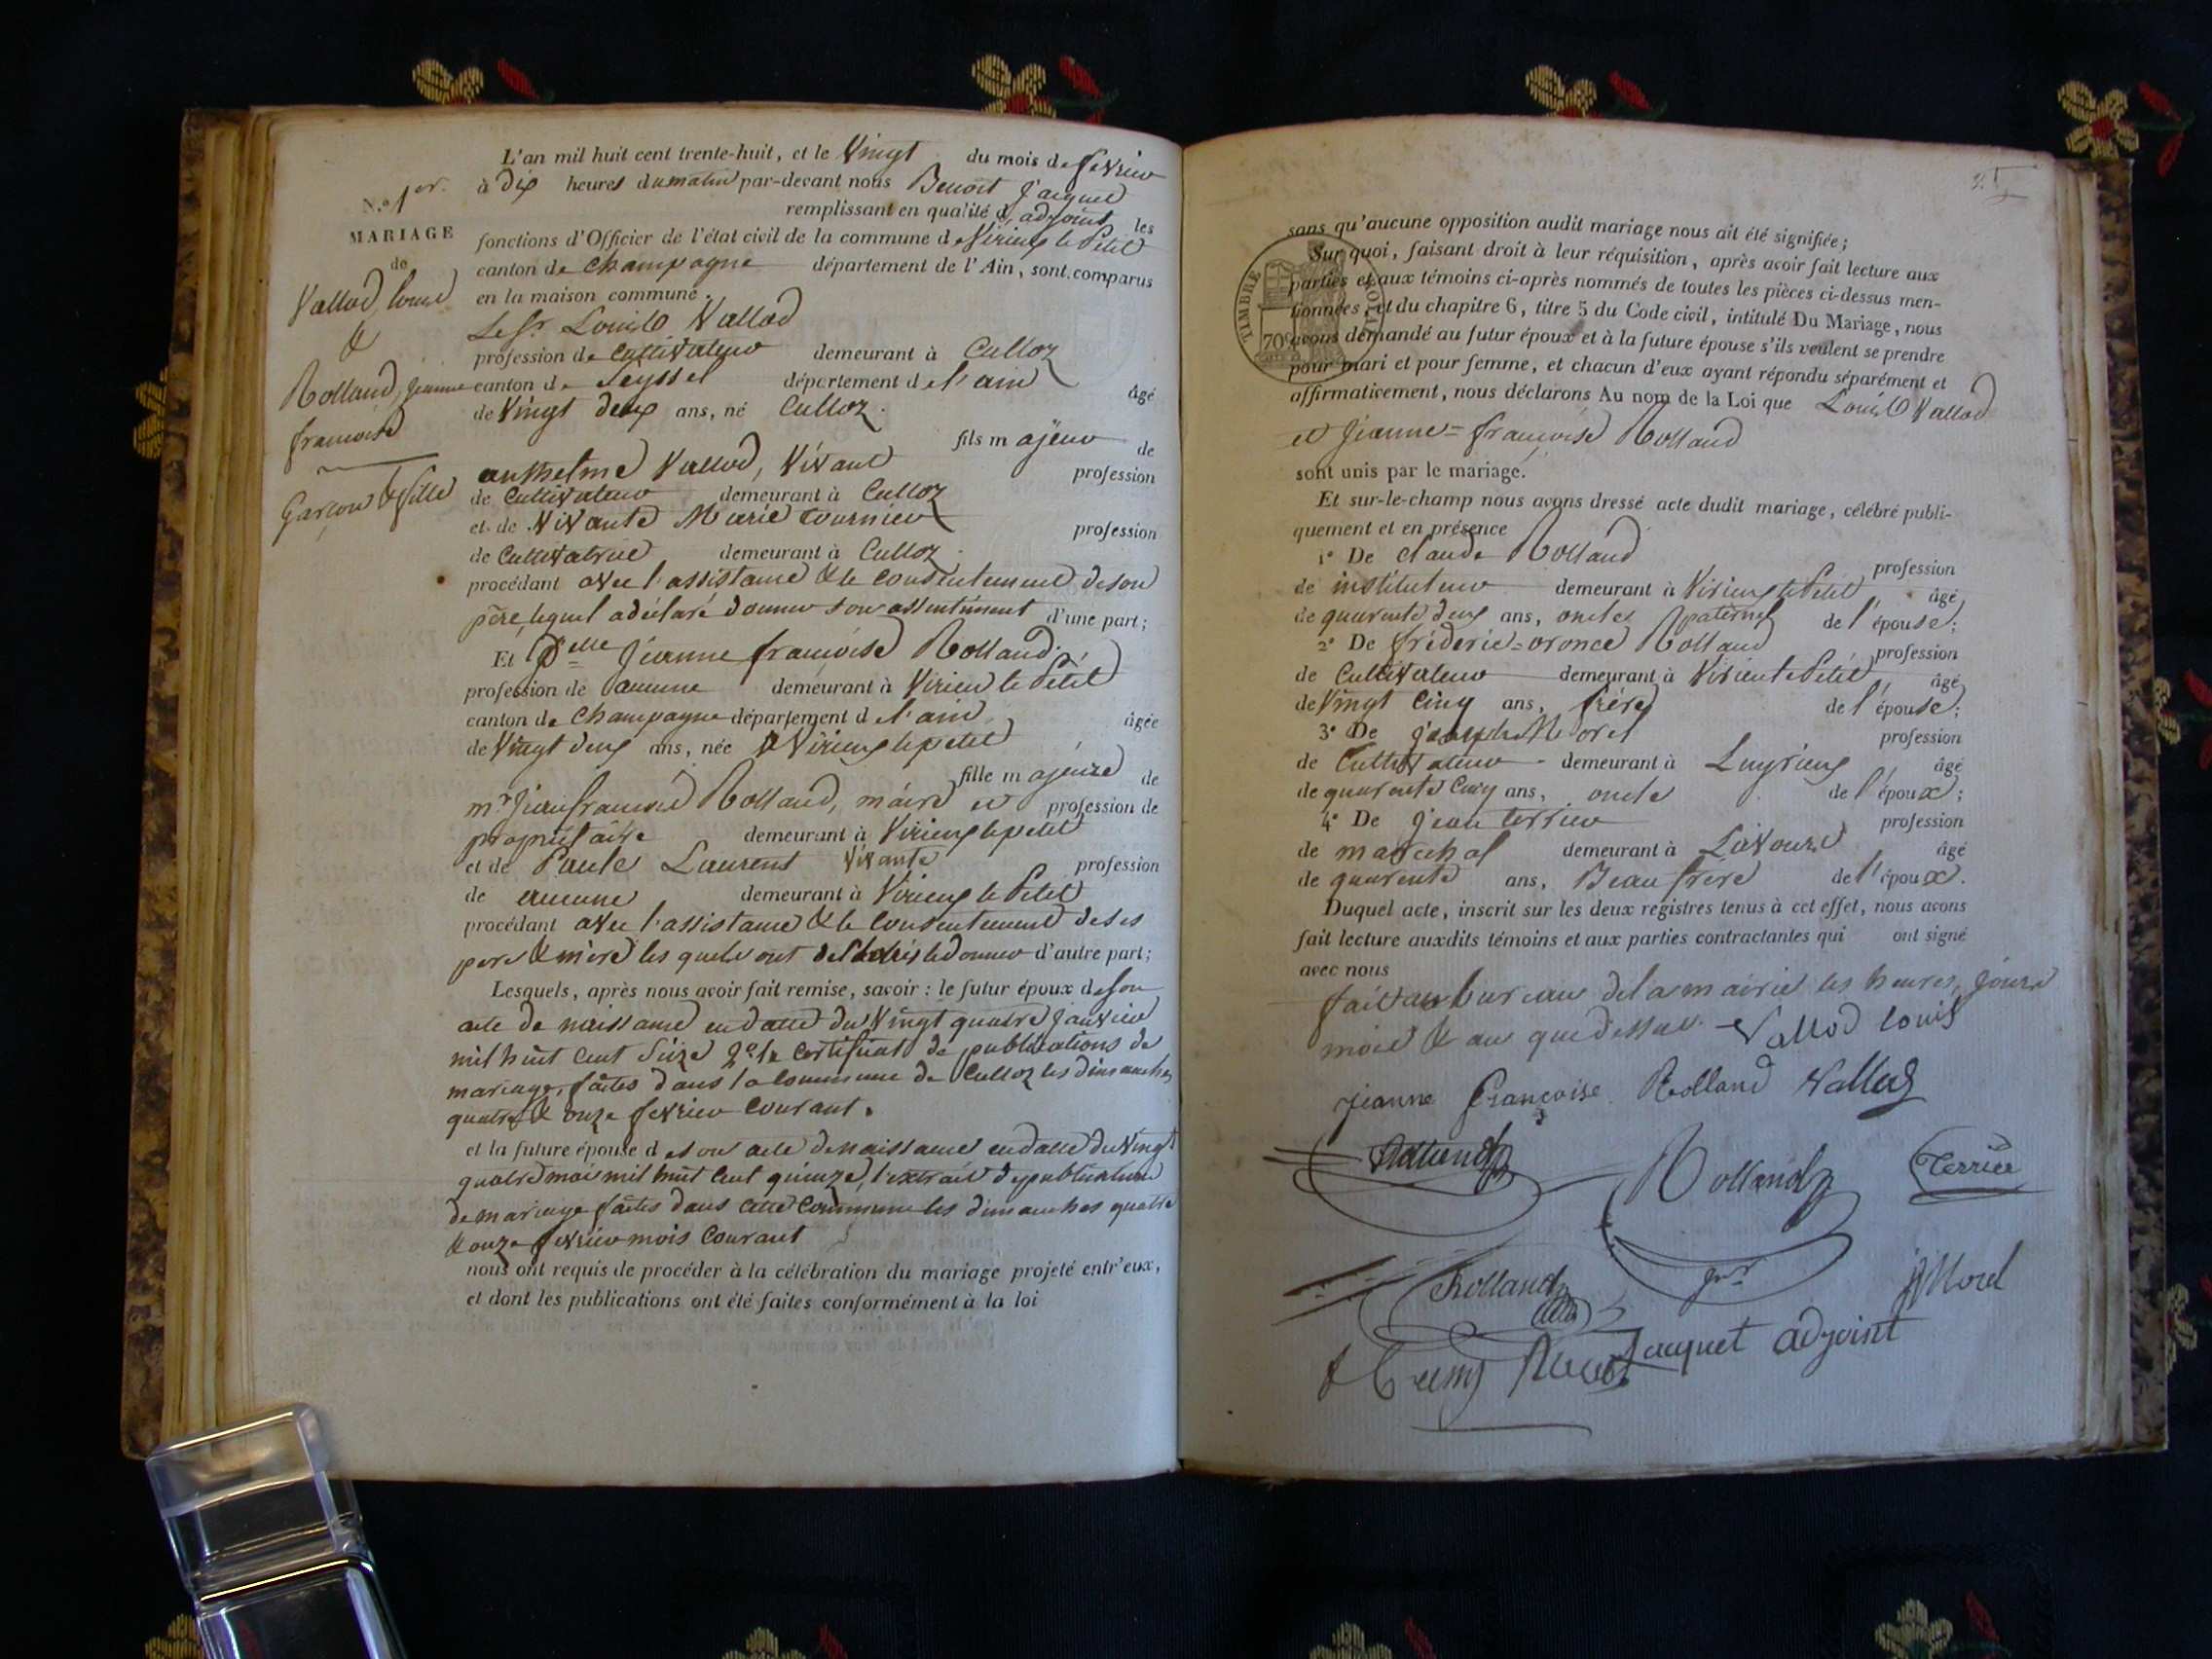 L'an mil huit cent trente-huit, et le Vingt du mois de fevrier
N.° 1er. à dix heures du matin par-devant nous Benoit Jaquet
remplissant en qualité d'adjoint les
MARIAGE fonctions d'Officier de l'état civil de la commune de Virieux le Petit
de canton de Champagne département de l'Ain, sont comparus
Vallod, Louis en la maison commune.
& Le Sr. Louis Vallod
profession de Cultivateur demeurant à Culloz
Rolland, Jeanne canton de Seyssel département de l'ain âgé
françoise de Vingt deux ans, né Culloz.
fils majeur de
Garçon & fille anthelme Vallod, Vivant profession
de Cultivateur demeurant à Culloz
et de Vivante Marie tournier profession
de Cultivatrice demeurant à Culloz.
procédant avec l'assistance & le consentement de son
père, lequel a déclaré donner son assentiment d'une part;
Et Delle Jeanne françoise Rolland.
profession de aucune demeurant à Virieu le Petit
canton de Champagne département de l'ain âgée
de Vingt deux ans, née Virieux le petit
fille majeure de
mr Jean françois Rolland, maire et profession de
propriétaire demeurant à Virieux le petit
et de Paule Laurent Vivante profession
de aucune demeurant à Virieux le Petit
procédant avec l'assistance & le consentement de ses
père & mère les quels ont donner d'autre part;
Lesquels, après nous avoir fait remise, savoir: le futur époux de son
acte de naissance en datte du Vingt quatre janvier
mil huit cent Seize 2° le certificat de publications de
mariage, faites dans la Commune de Culloz les dimanches
quatre & onze fevrier courant.
et la future épouse de son acte de naissance en datte du Vingt
quatre mai mil huit cent quinze, l'extrait de publication
de mariage faites dans cette Commune les dimanches quatre
& onze fevrier mois Courant
nous ont requis de procéder à la célébration du mariage projeté entr'eux,
et dont les publications ont été faites conformément à la loi
sans qu'aucune opposition audit mariage nous ait été signifiée;
Sur quoi, faisant droit à leur réquisition, après avoir fait lecture aux
parties et aux témoins ci-après nommés de toutes les pièces ci-dessus men-
tionnées, et du chapitre 6, titre 5 du Code civil, intitulé Du Mariage, nous
avons demandé au futur époux et à la future épouse s'ils veulent se prendre
pour mari et pour femme, et chacun d'eux ayant répondu séparément et
affirmativement, nous déclarons Au nom de la Loi que Louis Vallod
et Jeanne=françoise Rolland
sont unis par le mariage.
TIMBRE ROYAL
70c
Et sur-le-champ nous avons dressé acte dudit mariage, célébré publi-
quement et en présence
1° De Claude Rolland profession
de instituteur demeurant à Virieux le Petit âgé
de quarente deux ans, oncle paternel de l'épouse;
2° De fréderic=oronce Rolland profession
de Cultivateur demeurant à Virieu le Petit âgé
de Vingt Cinq ans, frère de l'épouse;
3° De joseph Morel profession
de Cultivateur demeurant à Luyrieux âgé
de quarente Cinq ans, oncle de l'époux;
4° De Jean terrier profession
de marechal demeurant à Lavours âgé
de quarente ans, Beau frère de l'époux.
Duquel acte, inscrit sur les deux registres tenus à cet effet, nous avons
fait lecture auxdits témoins et aux parties contractantes qui ont signé
avec nous
fait au bureau de la mairie les heures, jours
mois & an que dessus. Vallod louis
jeanne françoise Rolland Vallod
Rolland Rolland Terrier
Rolland jnr Morel
Jacquet adjoint